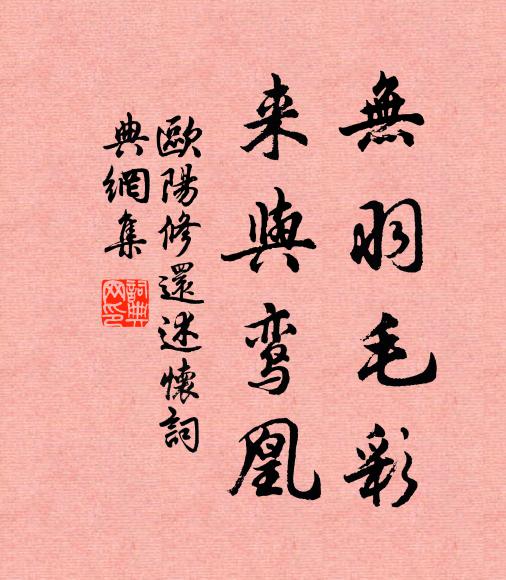 無羽毛彩
来與鸾凰
歐陽修還述懷詞
典網集
詞典
网印